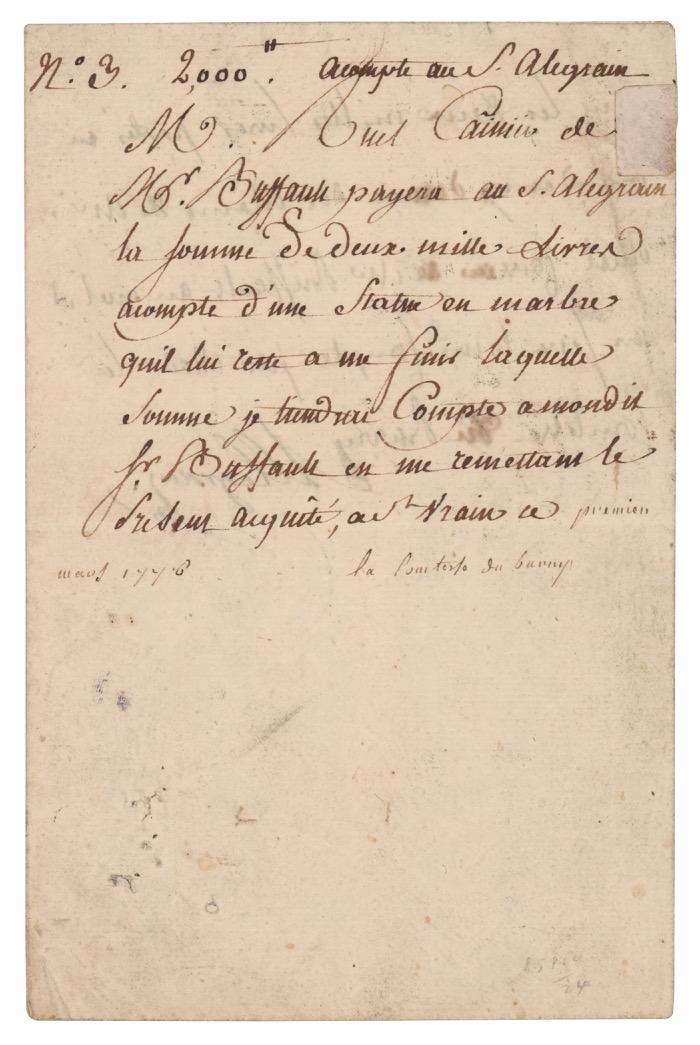 N.o 3. 2,000". acompte au S. Alegrain
M. Ruel Caissier de
Mr. Buffault payera au S. Alegrain
la somme De deux mille Livres
acompte d'une Statue en marbre
quil lui reste a me finir laquelle
Somme je tiendrai Compte a mondit
Sr Buffault en me remettant le
Present acquité, a St Vrain ce premier
mars 1776 la Comtesse du barry